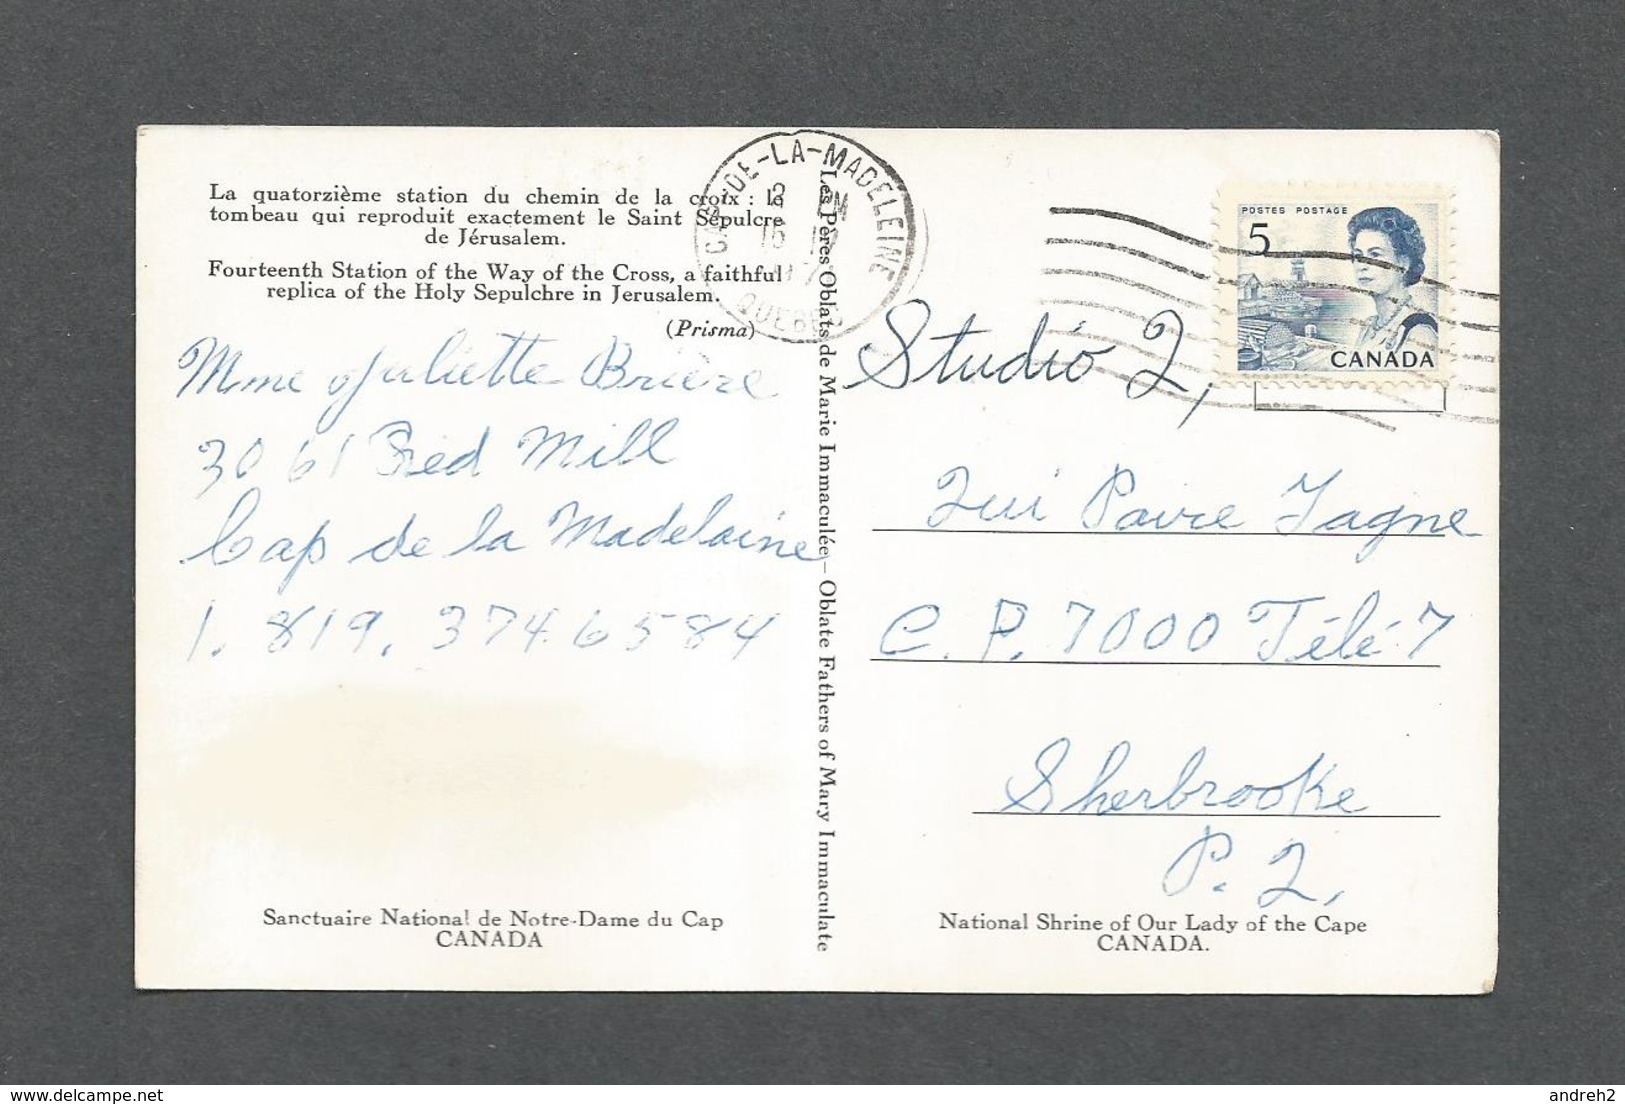 La quatorzième station du chemin de la croix : le
tombeau qui reproduit exactement le Saint Sépulcre
de Jérusalem.
Fourteenth Station of the Way of the Cross, a faithful
replica of the Holy Sepulchre in Jerusalem.
(Prisma)
Mme Juliette Brière
3061 Red Mill
Cap de la Madelaine
1. 819. 374 6584
Sanctuaire National de Notre-Dame du Cap
CANADA
Les Pères Oblats de Marie Immaculée – Oblate Fathers of Mary Immaculate
DE-LA-MADELEINE
QUEBEC
POSTES POSTAGE
5
CANADA
Studio 2,
Qui Paire Gagne
C. P. 7000 Télé 7
Sherbrooke
P. Q.
National Shrine of Our Lady of the Cape
CANADA.
delcampe.net
andreh2